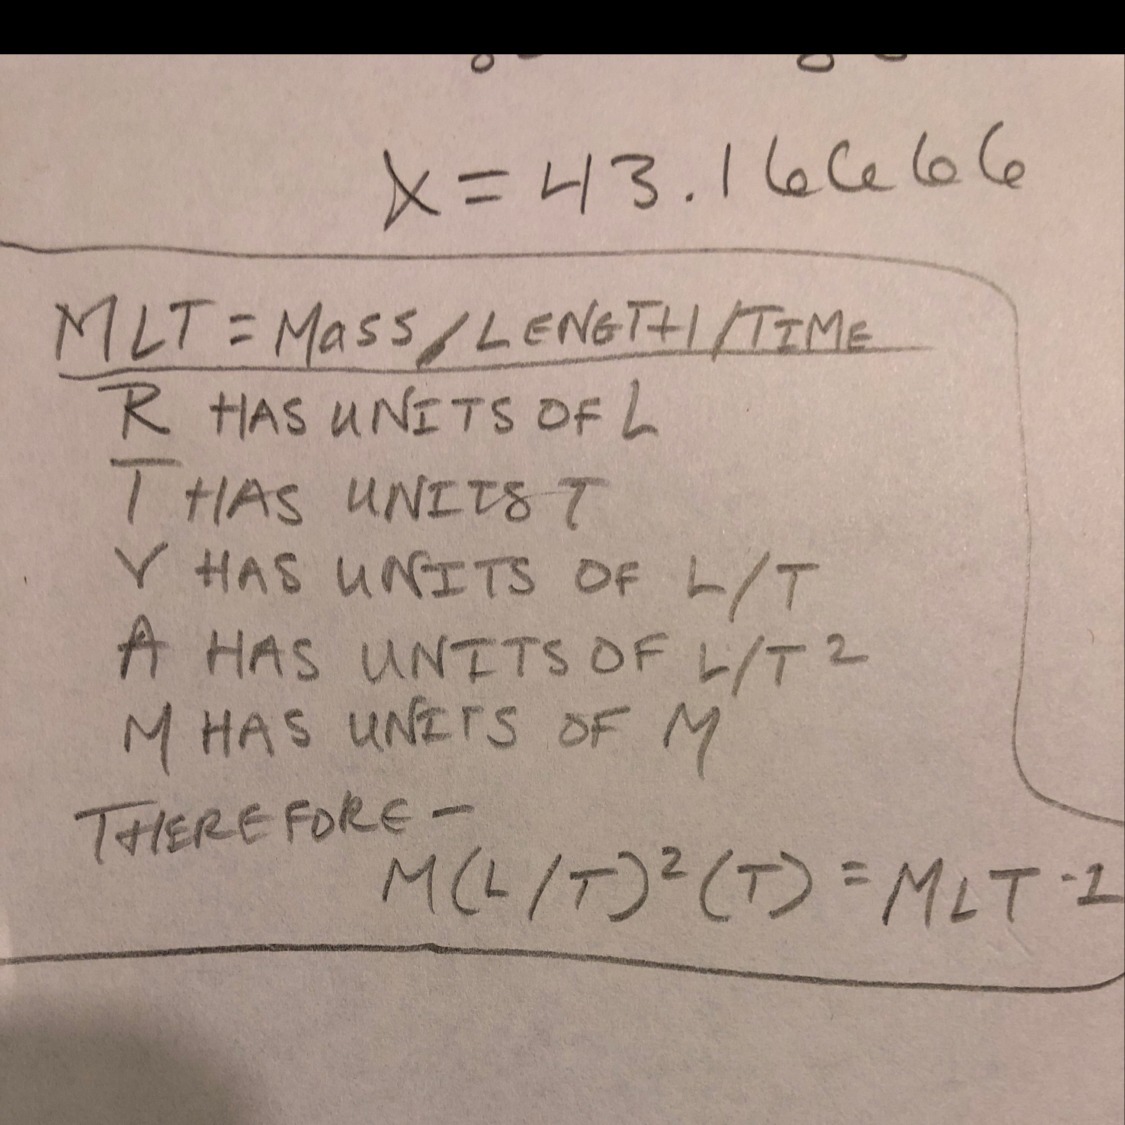 X = 43.16666
MLT = MASS/LENGTH/TIME
R HAS UNITS OF L
T HAS UNITS T
V HAS UNITS OF L/T
A HAS UNITS OF L/T2
M HAS UNITS OF M
THEREFORE -
M(L/T)²(T) = MLT-1